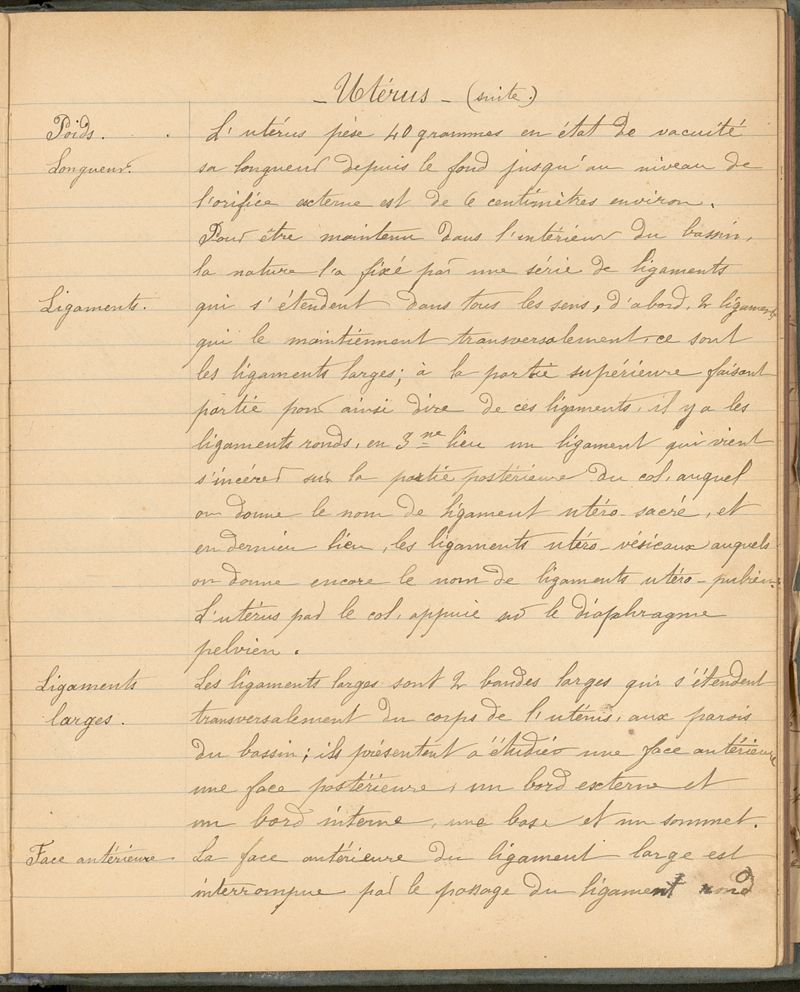 - Utérus - (suite.)
Poids. . L'utérus pèse 40 grammes en état de vacuité
Longueur. sa longueur depuis le fond jusqu'au niveau de
l'orifice externe est de 6 centimètres environ.
Pour être maintenu dans l'intérieur du bassin,
la nature l'a fixé par une série de ligaments
Ligaments. qui s'étendent dans tous les sens, d'abord, 2 ligaments
qui le maintiennent transversalement, ce sont
les ligaments larges; à la partie supérieure faisant
partie pour ainsi dire de ces ligaments, il y a les
ligaments ronds, en 3me lieu un ligament qui vient
s'incérer sur la partie postérieure du col, auquel
on donne le nom de ligament utéro-sacré, et
en dernier lieu, les ligaments utéro-vésicaux auquels
on donne encore le nom de ligaments utéro-pubien.
L'utérus par le col, appuie sur le diaphragme
pelvien.
Ligaments Les ligaments larges sont 2 bandes larges qui s'étendent
larges. transversalement du corps de l'utérus, aux parois
du bassin; ils présentent a étudier une face antérieure
une face postérieure, un bord externe et
un bord interne, une base et un sommet.
Face antérieure La face antérieure du ligament large est
interrompue par le passage du ligament rond